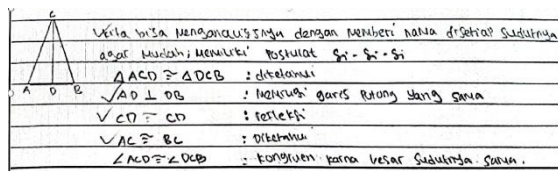 C
Kita bisa menganalisisnya dengan memberi nama disetiap sudutnya
agar mudah, memiliki Postulat Si - Si - Si
△ACD ≅ △DCB : diketahui
√AD ⊥ DB : memiliki garis potong yang sama
√ CD = CD : refleksi
√AC ≅ BC : Diketahui
∠ACD ≅ ∠DCB : kongruen karna besar sudutnya sama.
A D B